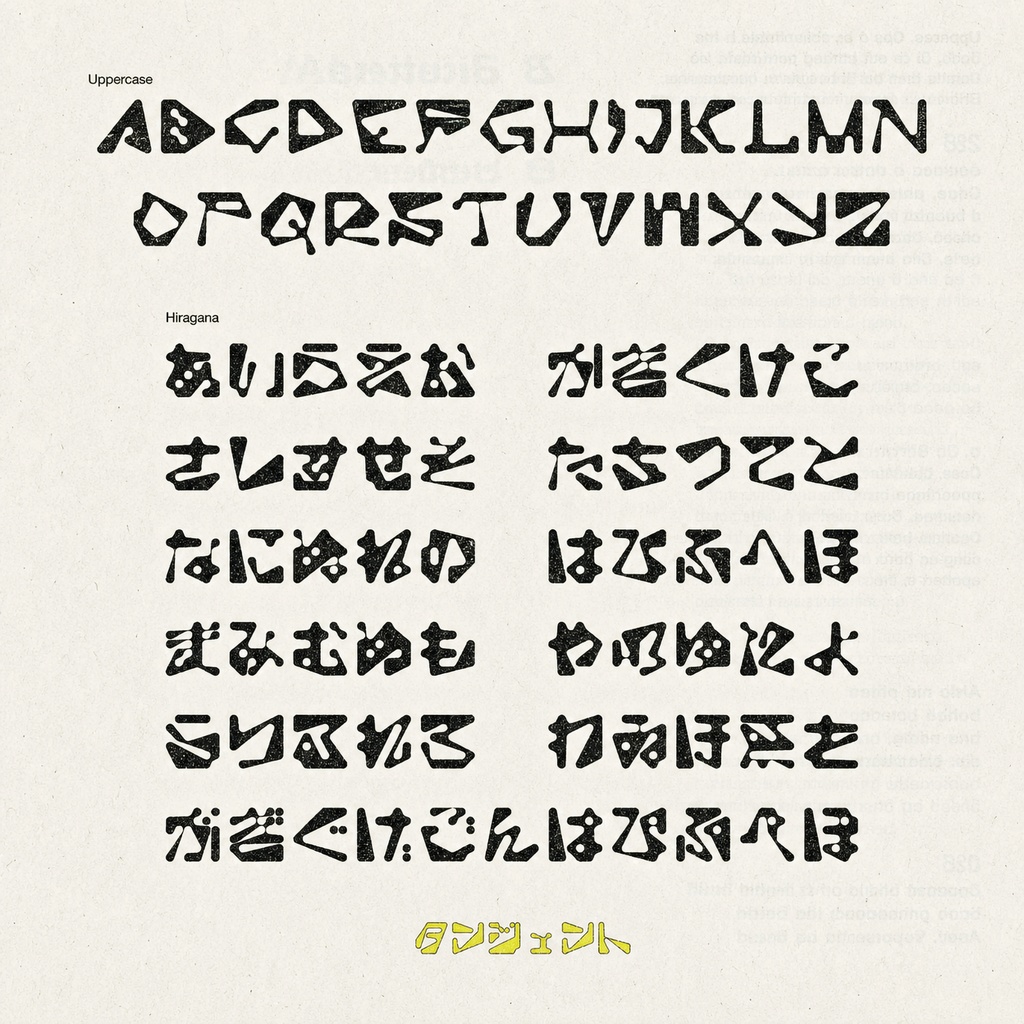 Uppercase
ABCDEFGHIJKLMN
OPQRSTUVWXYZ
Hiragana
あいうえお かきくけこ
さしすせそ たちつてと
なにぬねの はひふへほ
まみむめも や ゆ よ
らりるれろ わ を
がぎぐげごんはひふへほ
タンジェント